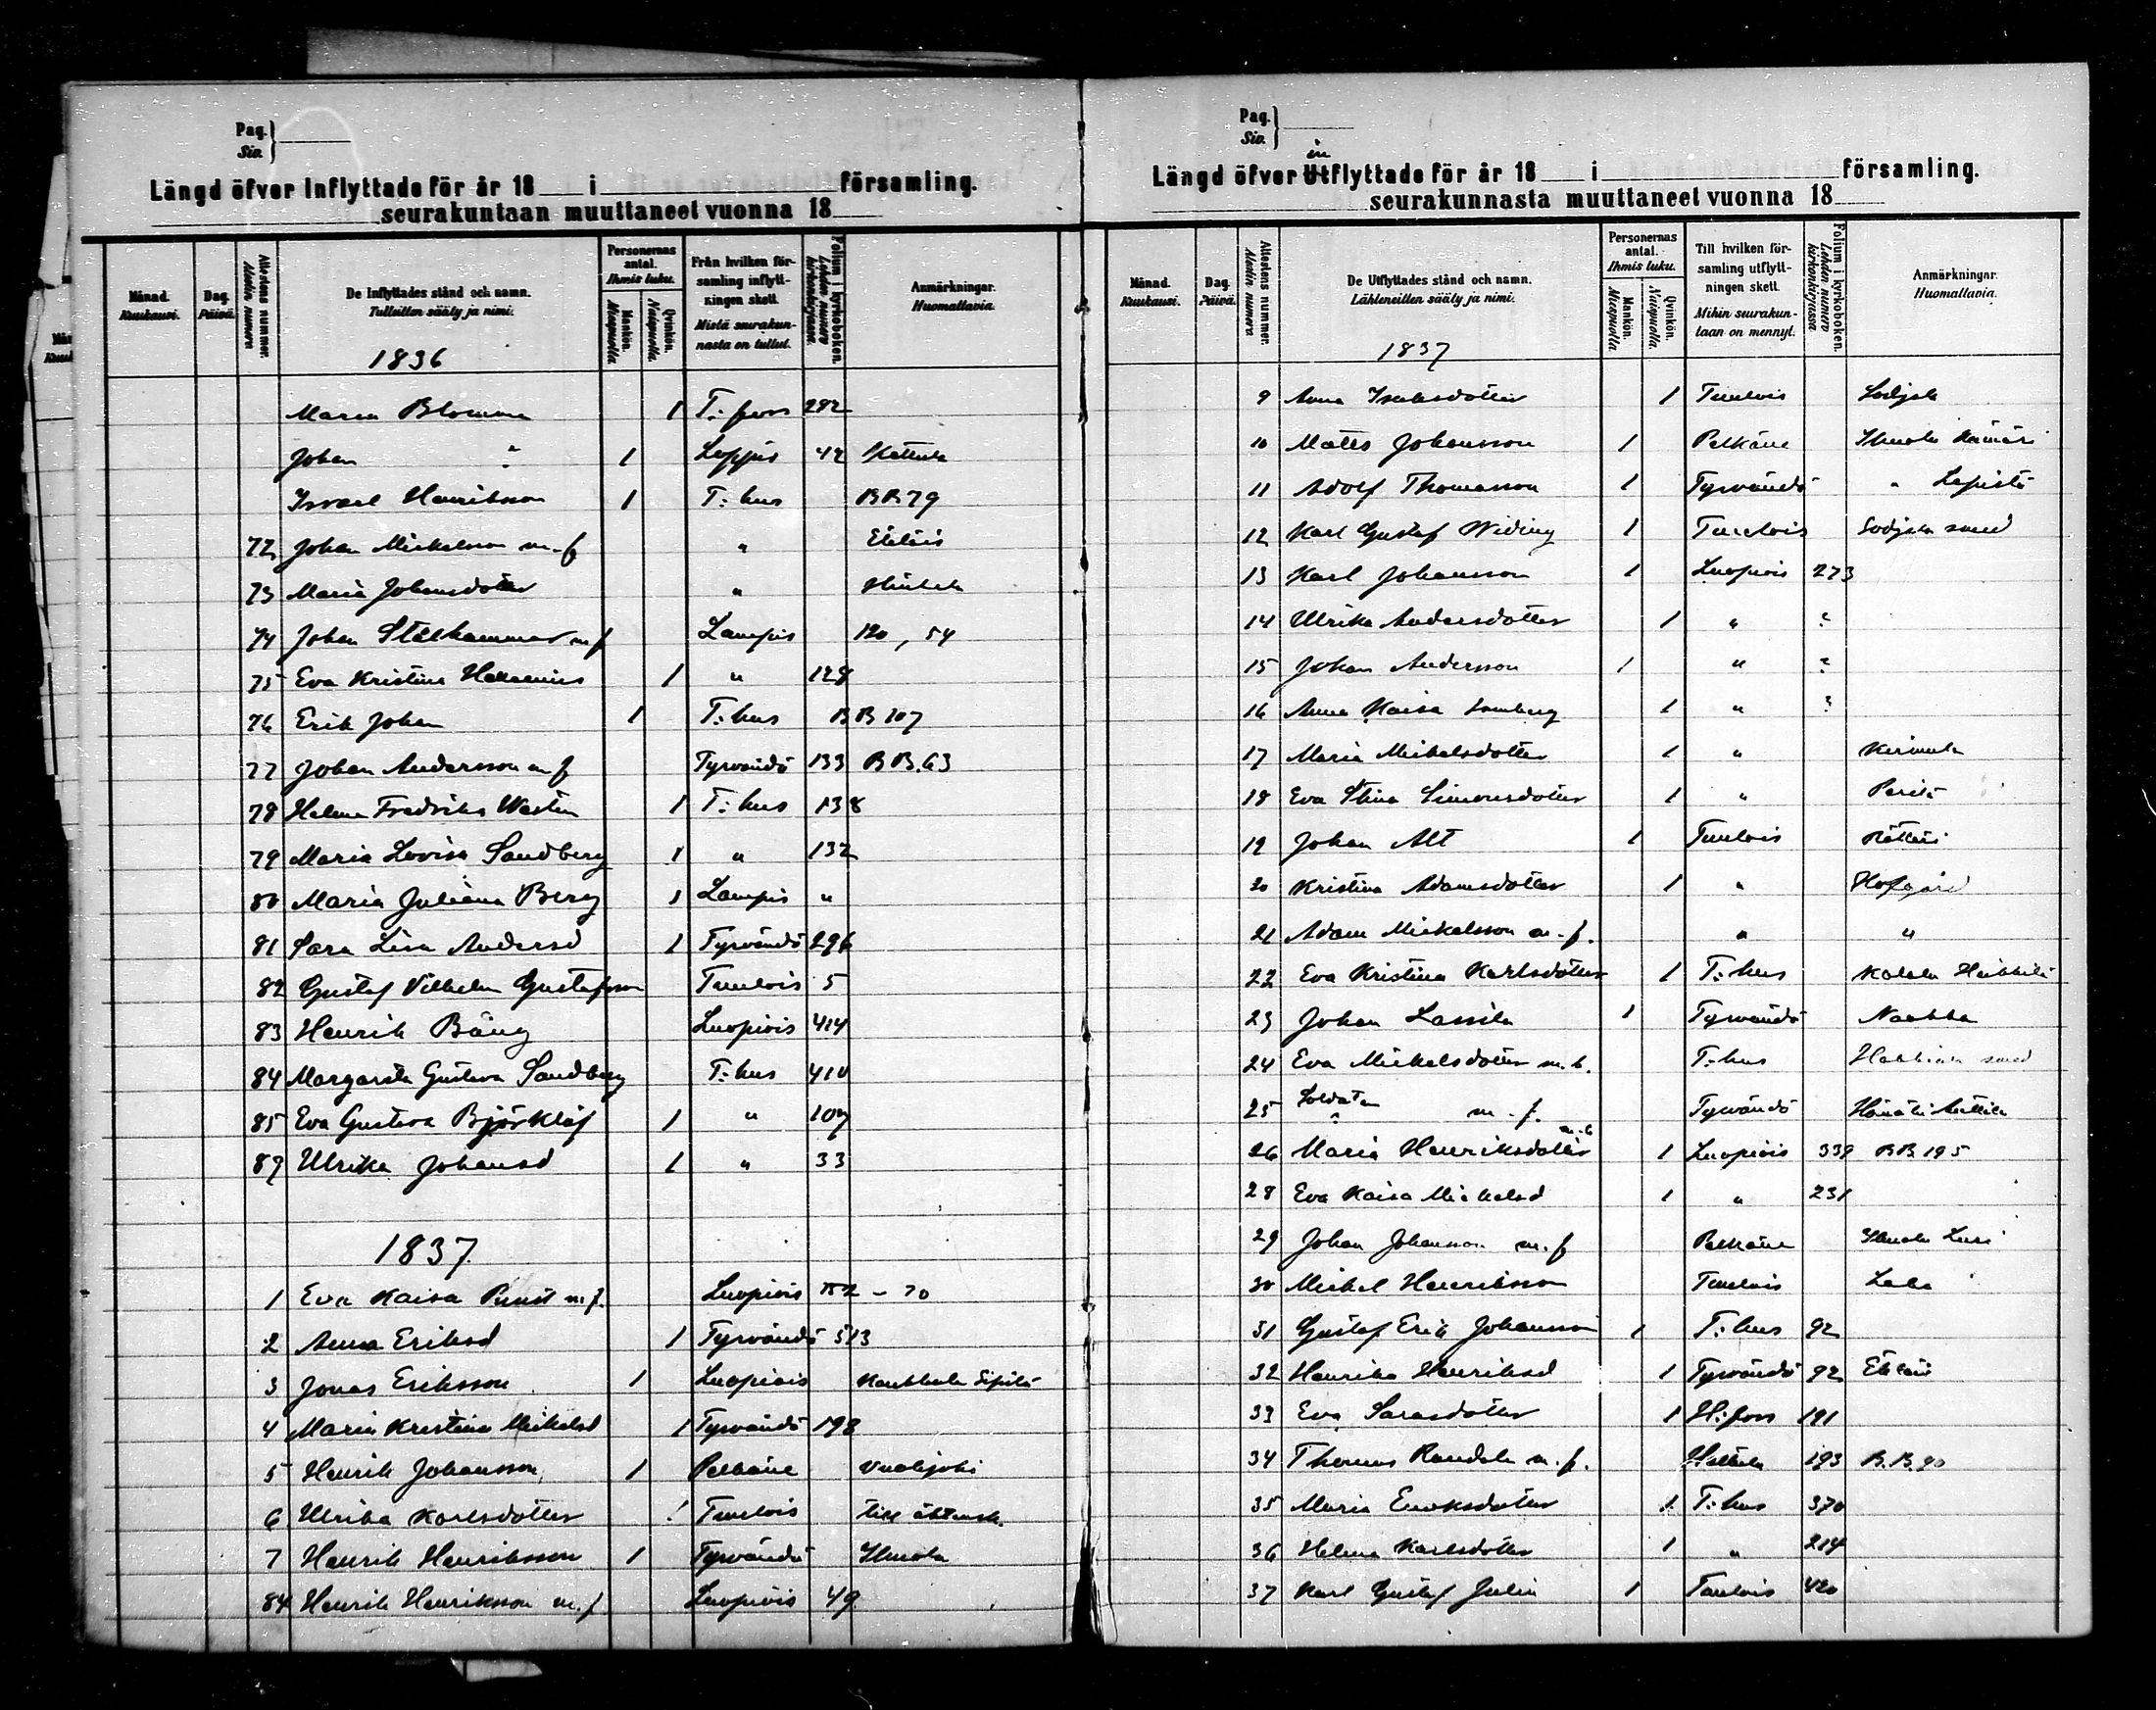 Pag.
Siv.
Längd öfver Inflyttade för år 18 i församling.
seurakuntaan muuttaneet vuonna 18
Månad. Kuukausi.
Dag. Päivä.
Attestens nummer. Alestin numero
De Inflyttades stånd och namn. Tulleitten sääty ja nimi.
Personernas antal. Ihmis luku.
Mankön. Miespuolia
Qvinkön. Naispuolia.
Från hvilken församling inflyttningen skett. Mistä seurakunnasta on tullut.
Folium i kyrkoboken. Lehden numero kirkonkirjassa.
Anmärkningar. Huomattavia.
1836
Maria Bloman 1 T:fors 292
Johan " 1 Loppis 42 Kettula
Israel Henriksson 1 T:hus BB 79
72 Johan Mickelsson m.f " Eteläis
73 Maria Johansdotter "
74 Johan Stålhammar m f Lampis 120, 54
75 Eva Kristina 1 " 128
76 Erik Johan 1 T:hus BB 107
77 Johan Andersson m f Tyrvändö 133 BB.63
78 Helena Fredrika Westin 1 T:hus 138
79 Maria Lovisa Sandberg 1 " 132
80 Maria Juliana Berg 1 Lampis "
81 Sara Lisa Andersd 1 Tyrvändö 296
82 Gustaf Vilhelm Gustafsson Tuulois 5
83 Henrik Bäng Luopiois 414
84 Margareta Gustava Sandberg T:hus 410
85 Eva Gustava Björklöf 1 " 107
89 Ulrika Johansd 1 " 33
1837.
1 Eva Kaisa m.f. Luopiois 152 - 70
2 Anna Eriksd 1 Tyrvändö 513
3 Jonas Eriksson 1 Luopiois Kaukkala Sipilä
4 Maria Kristina Mickelsd 1 Tyrvändö 198
5 Henrik Johansson 1 Pelkäne Vuolijoki
6 Ulrika Karlsdotter 1 Tuulois till äktensk.
7 Henrik Henriksson 1 Tyrvändö Ilmola
84 Henrik Henriksson m.f Luopiois 49
Pag.
Siv.
in
Längd öfver Utflyttade för år 18 i församling.
seurakunnasta muuttaneet vuonna 18
Månad. Kuukausi.
Dag. Päivä.
Attestens nummer. Alestin numero
De Utflyttades stånd och namn. Lähteneitten sääty ja nimi.
Personernas antal. Ihmis luku.
Mankön. Miespuolia
Qvinkön. Naispuolia.
Till hvilken församling utflyttningen skett. Mihin seurakuntaan on mennyt.
Folium i kyrkoboken. Lehden numero kirkonkirjassa
Anmärkningar. Huomattavia.
1837
9 Anna Isaksdotter 1 Tuulois Lodjala
10 Matts Johansson 1 Pelkäne Ilmola Kämäri
11 Adolf Thomasson 1 Tyrvändö " Lepistö
12 Karl Gustaf Widing 1 Tuulois Lodjala smed
13 Karl Johansson 1 Luopiois 273
14 Ulrika Andersdotter 1 " ?
15 Johan Andersson 1 " ?
16 Anna Kaisa 1 " ?
17 Maria Mickelsdotter 1 "
18 Eva Stina Simonsdotter 1 " Perilä
19 Johan Alt 1 Tuulois
20 Kristina Adamsdotter 1 " Hofgård
21 Adam Mickelsson m.f. " "
22 Eva Kristina Karlsdotter 1 T:hus Heikkilä
23 Johan Lassila 1 Tyrvändö Naakka
24 Eva Mickelsdotter m.b. T:hus smed
25 Soldaten m.f. Tyrvändö
26 Maria Henriksdotter m.b 1 Luopiois 339 BB 195
28 Eva Kaisa Mickelsd 1 " 231
29 Johan Johansson m.f Pelkäne Ilmola
30 Mickel Henriksson Tuulois
31 Gustaf Erik Johansson 1 T:hus 92
32 Henrika Henriksd 1 Tyrvändö 92 Eteläis
33 Eva Sarasdotter 1 H:fors 191
34 Thomas Randala m.f. 193 B.B.90
35 Maria Enoksdotter 1 T:hus 370
36 Helena Karlsdotter 1 " 214
37 Karl Gustaf Julin 1 Tuulois 420